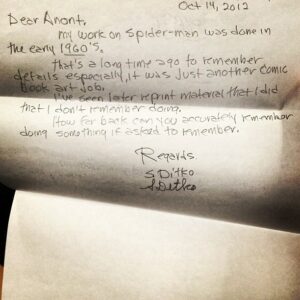 Oct 14, 2012
Dear Anont,
my work on Spider-man was done in
the early 1960's.
that's a long time ago to remember
details especially, it was just another comic
book art job.
I've seen later reprint material that I did
that I don't remember doing.
How far back can you accurately remember
doing something if asked to remember.
Regards
S. Ditko
S Ditko